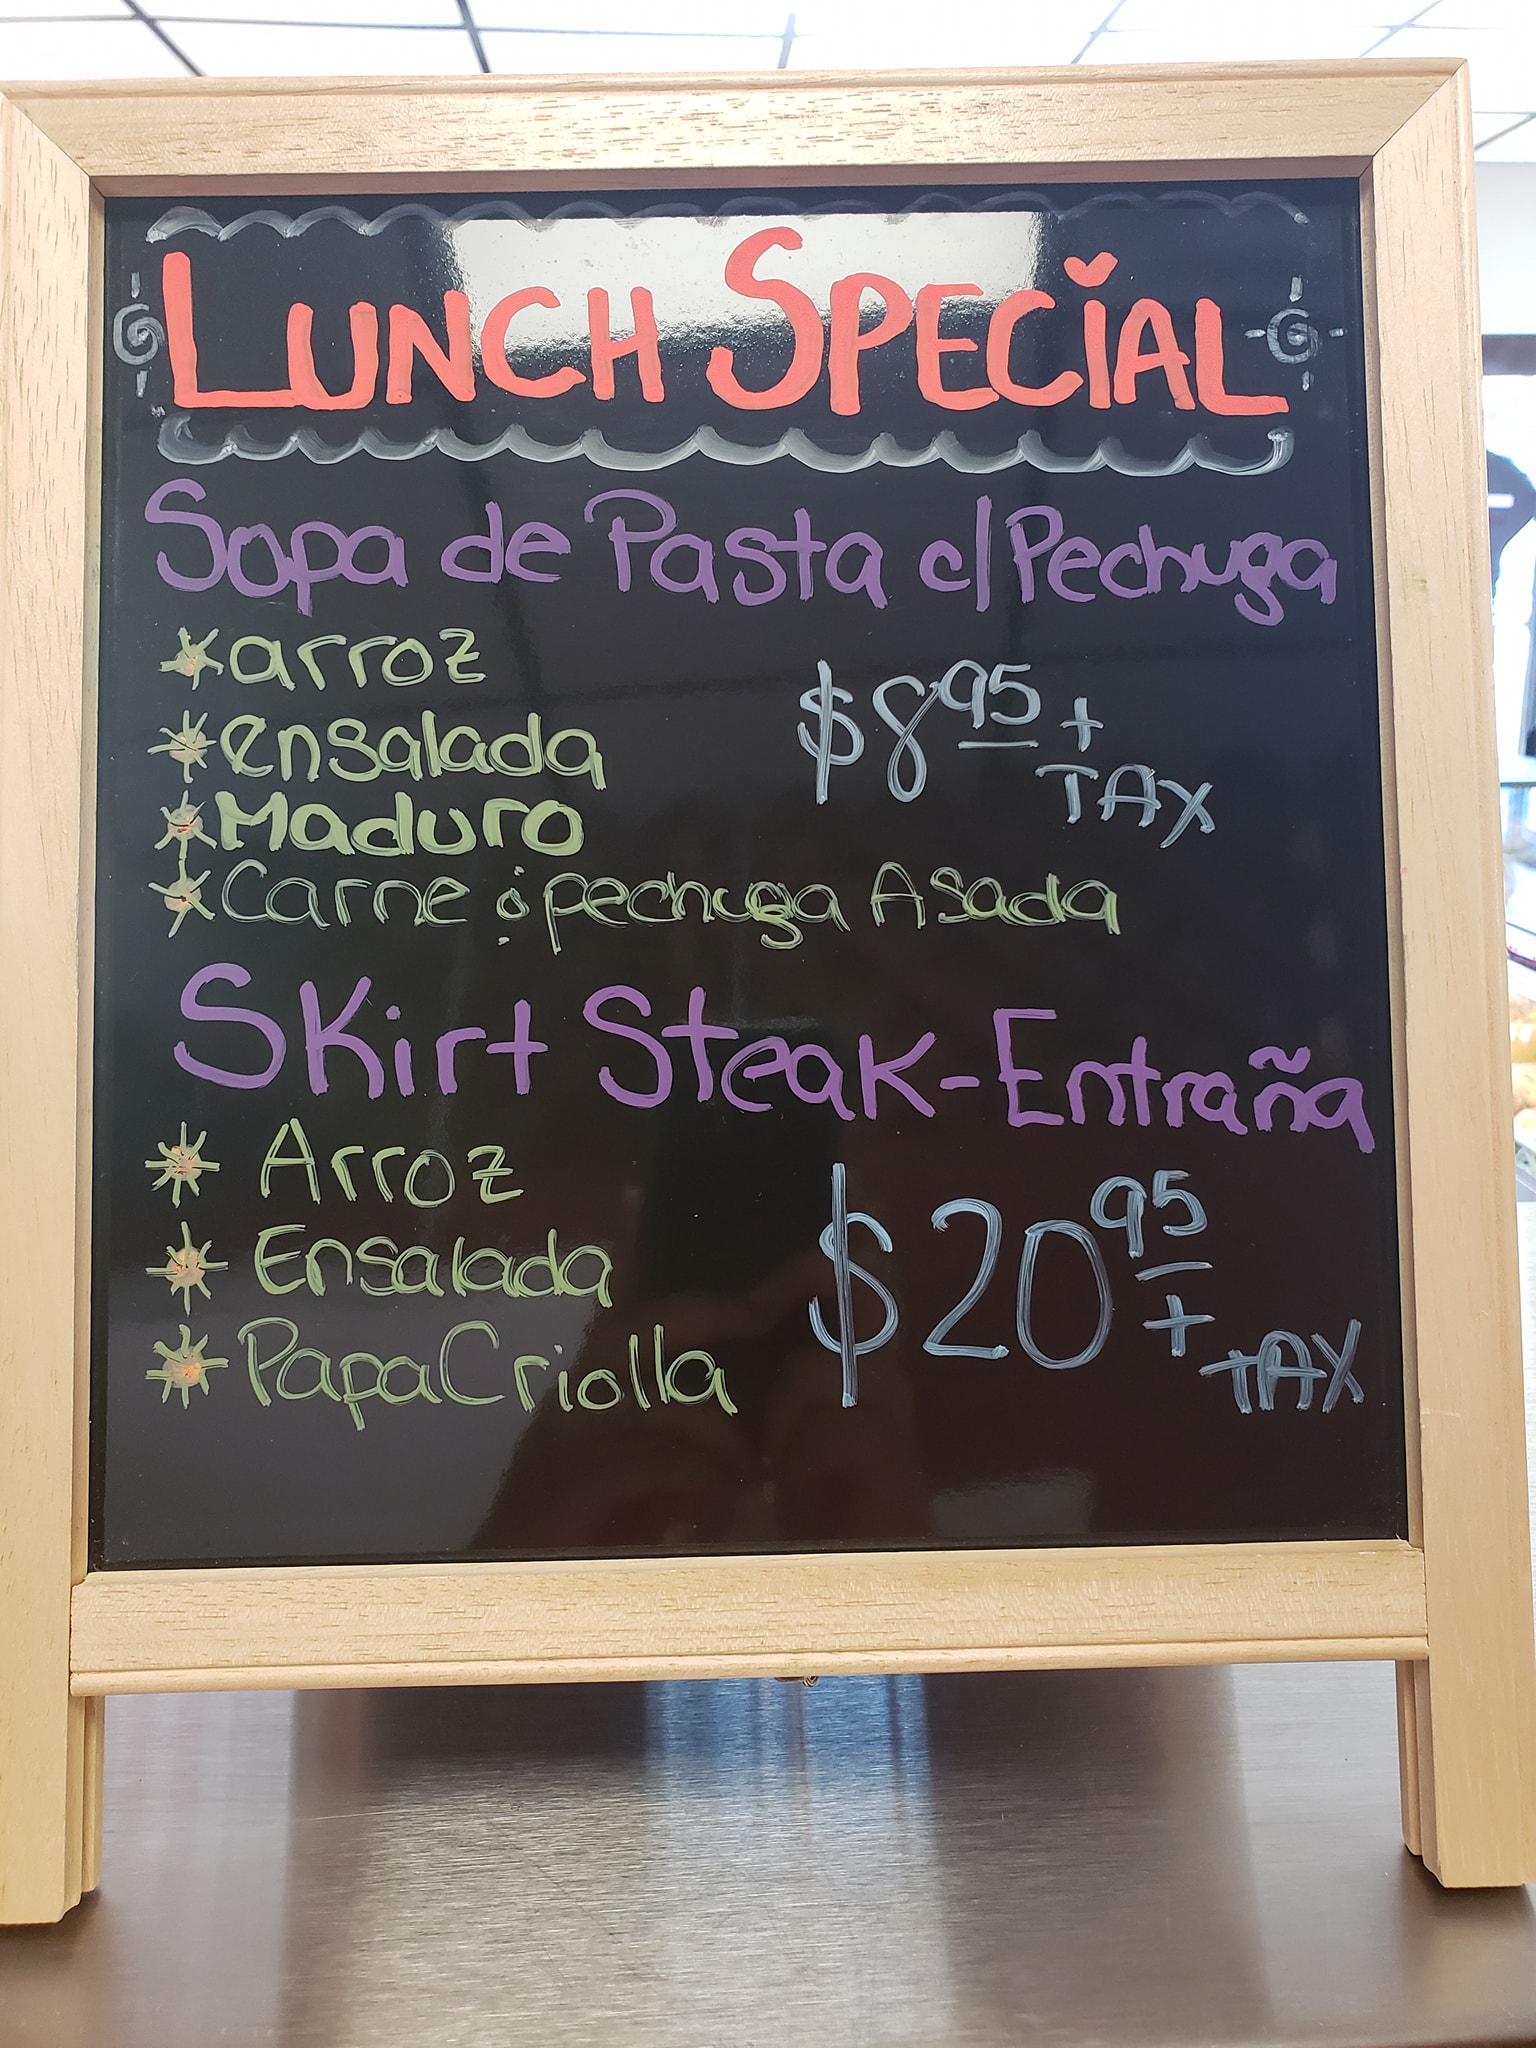 LUNCH SPECIAL
Sopa de Pasta c/Pechuga
arroz
ensalada
Maduro
$8.95 +
TAX
Carne ó pechuga Asada
Skirt Steak - Entraña
Arroz
Ensalada
Papa Criolla
$20.95
+ TAX